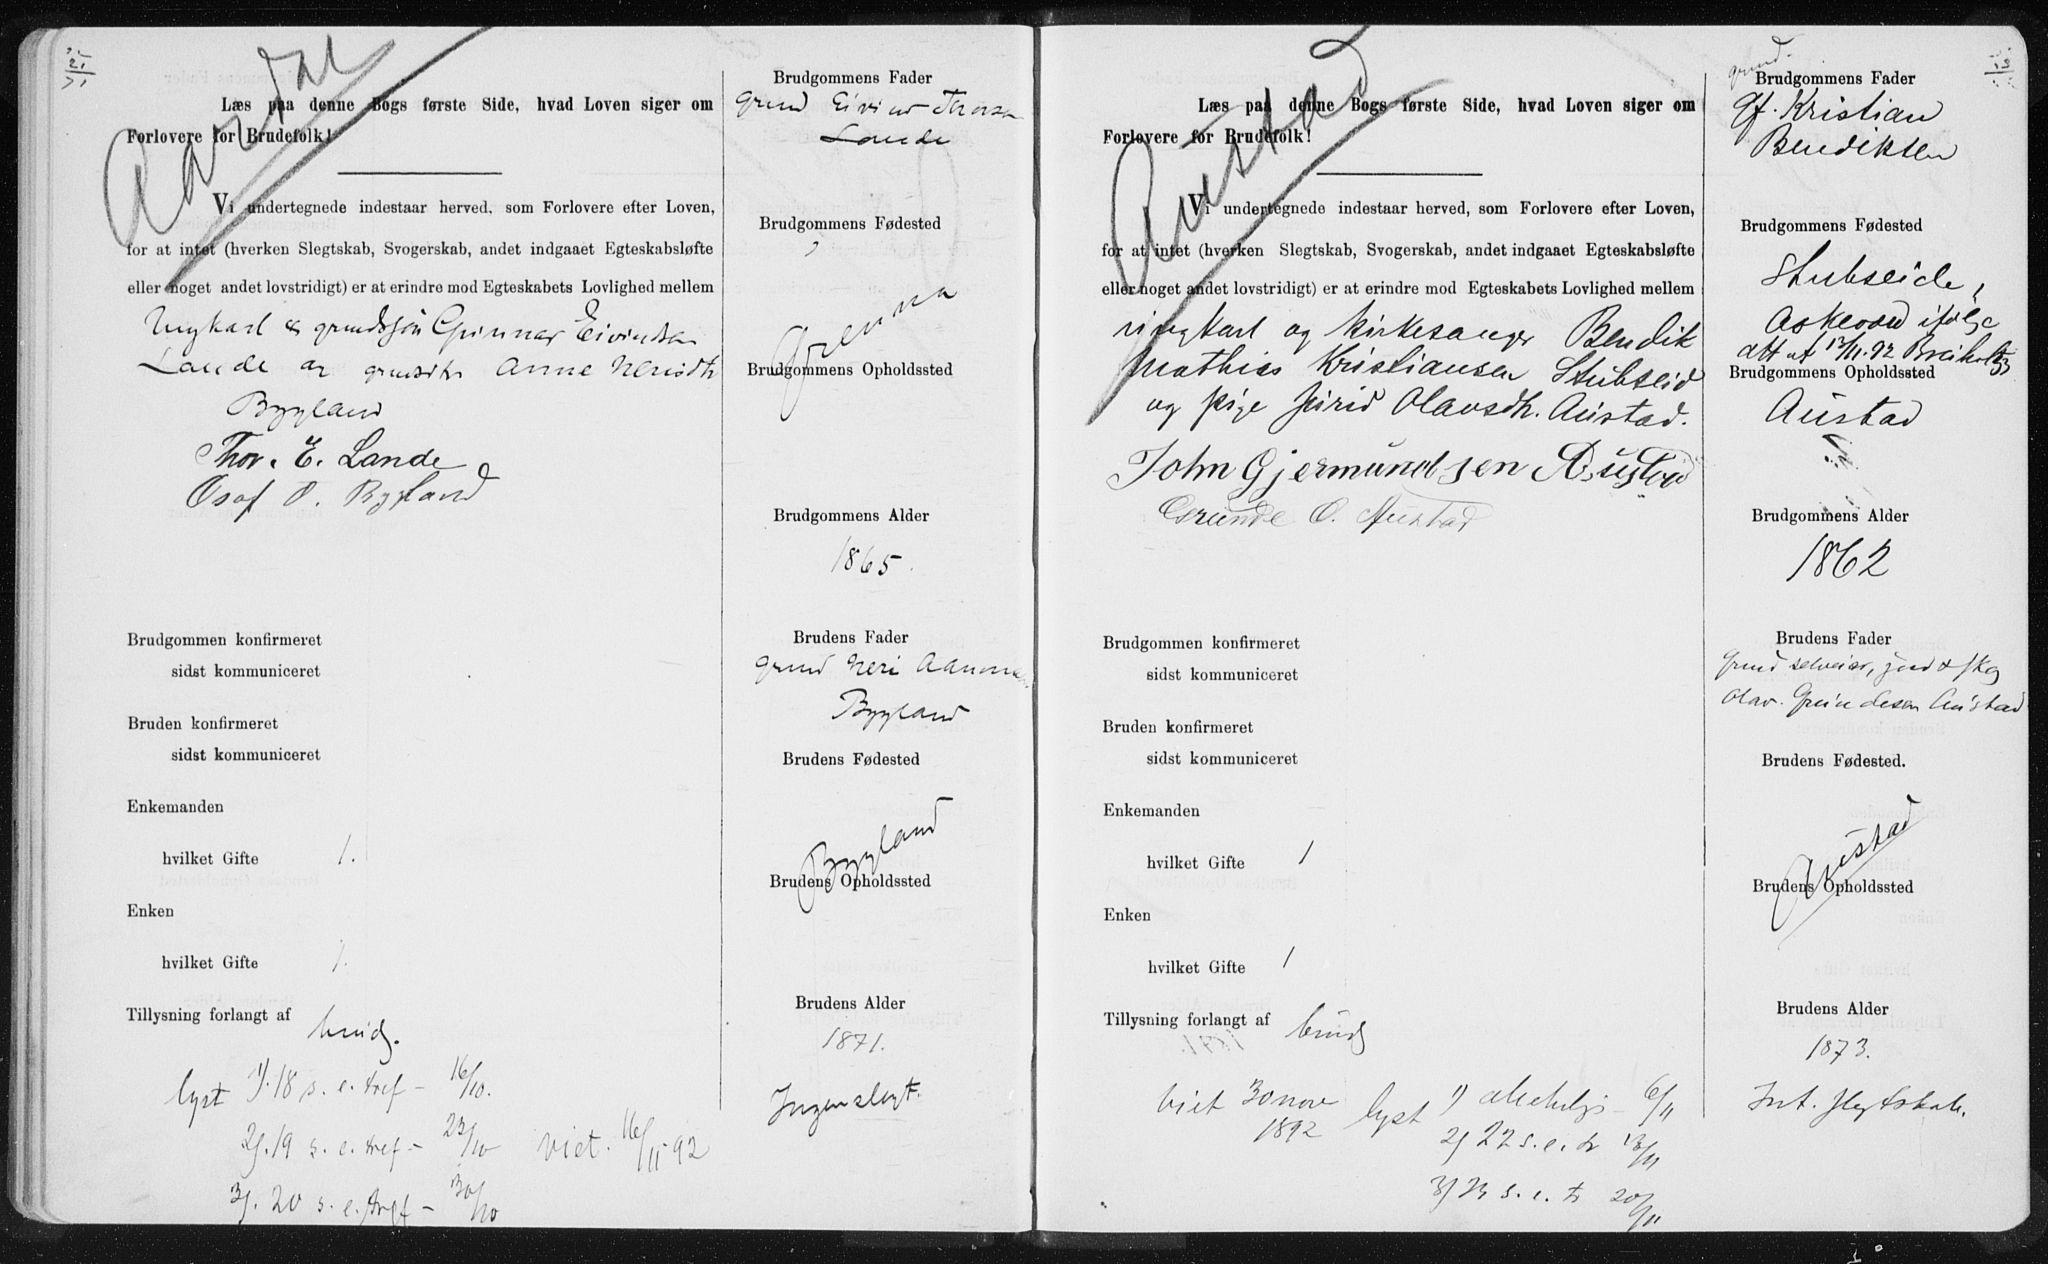 Aardal
Læs paa denne Bogs første Side, hvad Loven siger om
Forlovere for Brudefolk!
Vi undertegnede indestaar herved, som Forlovere efter Loven,
for at intet (hverken Slegtskab, Svogerskab, andet indgaaet Egteskabsløfte
eller noget andet lovstridigt) er at erindre mod Egteskabets Lovlighed mellem
Ungkarl & grundssøn Gunnar Eivindsen
Lande og Anne
Bygland
Thor. E. Lande
Osof O. Bygland
Brudgommen konfirmeret
sidst kommuniceret
Bruden konfirmeret
sidst kommuniceret
Enkemanden
hvilket Gifte 1.
Enken
hvilket Gifte 1.
Tillysning forlangt af brudg.
lyst 1/. 18 s. e. tref – 16/10.
2/. 19 s. e. tref – 23/10
viet. 16/11 92
3/. 20 s. e. tref – 30/10
Brudgommens Fader
Grmd Eivind
Lande
Brudgommens Fødested
Brudgommens Opholdssted
Brudgommens Alder
1865.
Brudens Fader
Grmd Neri
Bygland
Brudens Fødested
Bygland
Brudens Opholdssted
Brudens Alder
1871.
Ingen slegt.
Austad
Læs paa denne Bogs første Side, hvad Loven siger om
Forlovere for Brudefolk!
Vi undertegnede indestaar herved, som Forlovere efter Loven,
for at intet (hverken Slegtskab, Svogerskab, andet indgaaet Egteskabsløfte
eller noget andet lovstridigt) er at erindre mod Egteskabets Lovlighed mellem
ungkarl og kirkesanger Bendik
Mathias Kristiansen Stubseid
og pige Jorid Olavsdt. Austad.
John Gjermundsen Austad
Grunde O. Austad
Brudgommen konfirmeret
sidst kommuniceret
Bruden konfirmeret
sidst kommuniceret
Enkemanden
hvilket Gifte 1
Enken
hvilket Gifte 1
Tillysning forlangt af brudg
viet 30 nov
1892
lyst 1/ 6/11
2/ 22 s. e. tr 13/11
3/ 23 s. e. tr 20/11
grmd.
Brudgommens Fader
Gf. Kristian
Bendiktsen
Brudgommens Fødested
Stubseide,
Askevold ifølge
att af 12/11.92
Brudgommens Opholdssted
Austad
Brudgommens Alder
1862
Brudens Fader
Grmd selveier, jord & skog
Olav. Grundesen Austad
Brudens Fødested.
Austad
Brudens Opholdssted
Brudens Alder
1873.
Int. slegtskab.